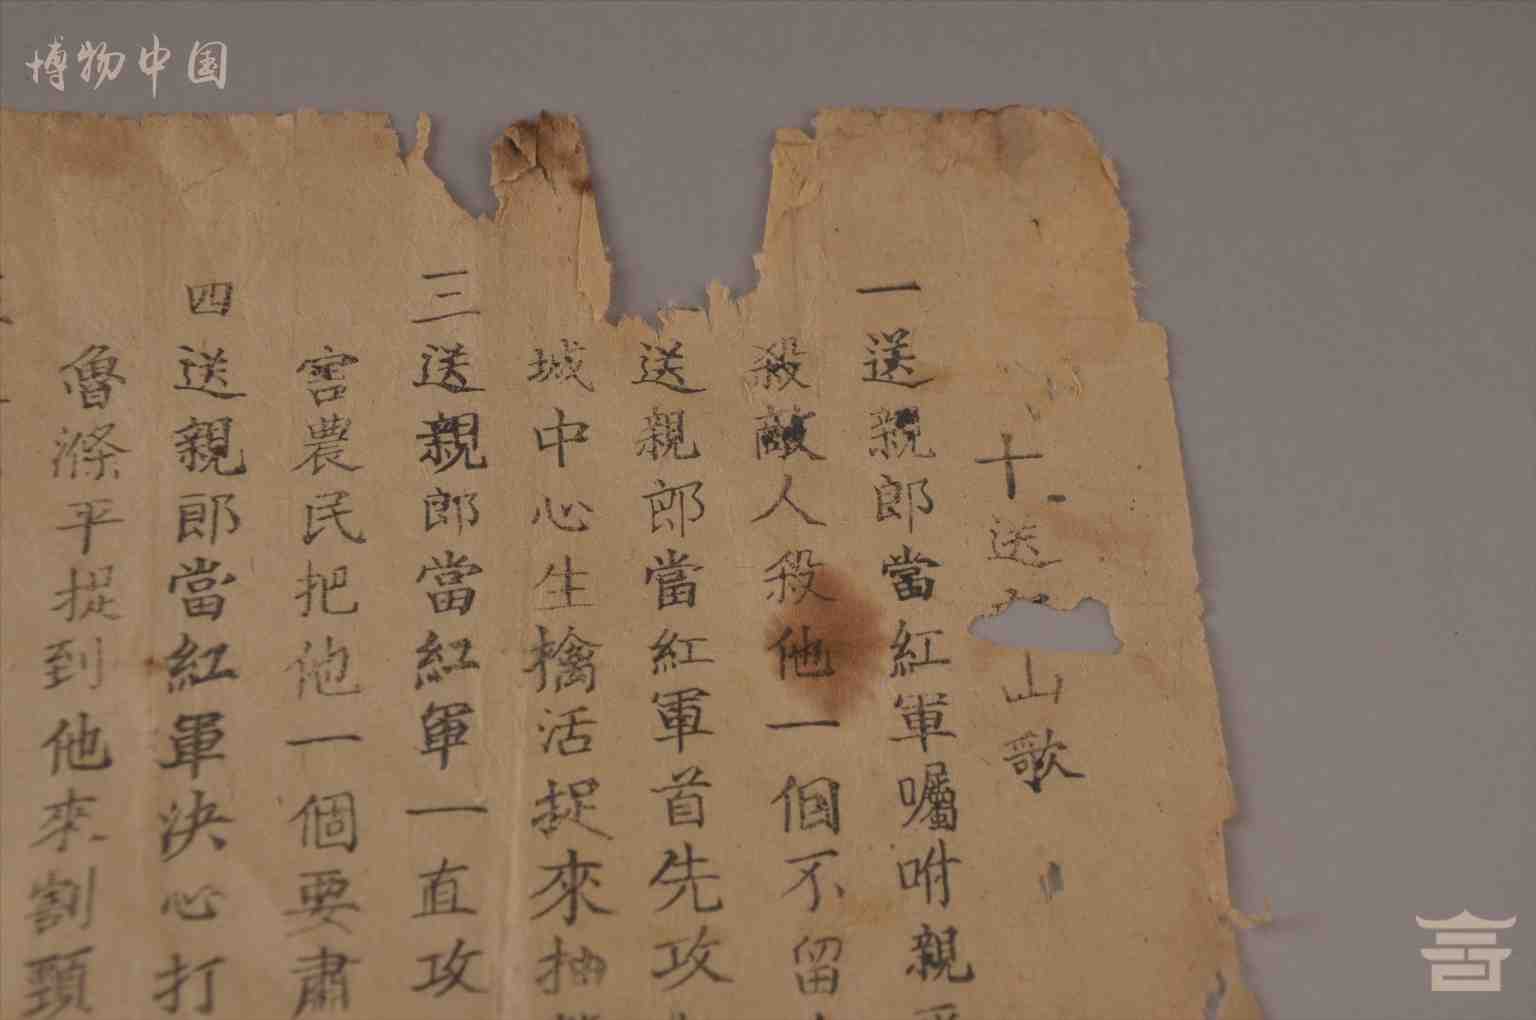 博物中国
十送
山歌
一送親郎當紅軍囑咐親
殺敵人殺他一個不留
送親郎當紅軍首先攻
城中心生擒活捉來抽
三送親郎當紅軍一直攻
害農民把他一個要肅
四送親郎當紅軍決心打
魯滌平捉到他來割頸